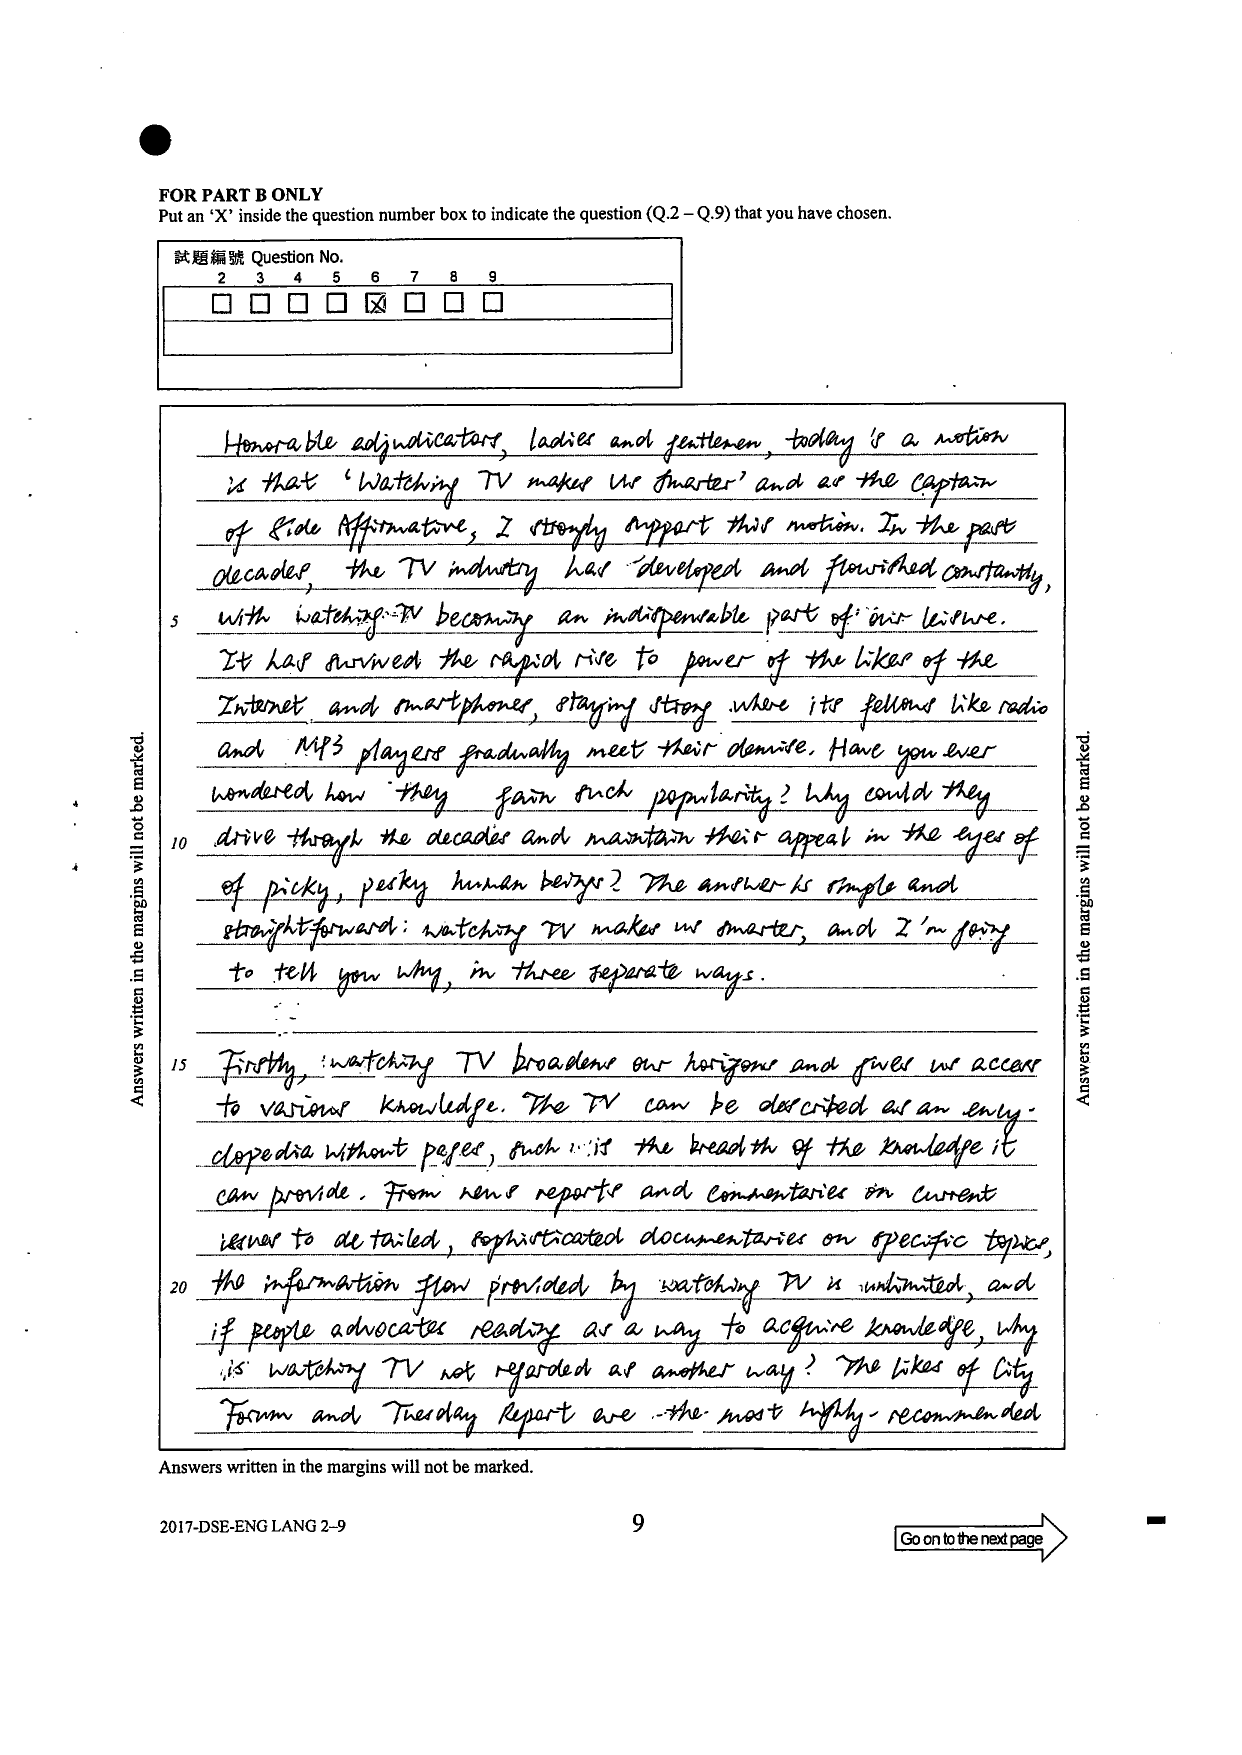 FOR PART B ONLY
Put an 'X' inside the question number box to indicate the question (Q.2 – Q.9) that you have chosen.
試題編號 Question No.
2 3 4 5 6 7 8 9
Honorable adjudicators, ladies and gentlemen, today 's a motion
is that 'Watching TV makes us smarter' and as the captain
of Side Affirmative, I strongly support this motion. In the past
decades, the TV industry has developed and flourished constantly,
5 with watching TV becoming an indispensable part of our leisure.
It has survived the rapid rise to power of the likes of the
Internet and smartphones, staying strong where its fellows like radio
and MP3 players gradually meet their demise. Have you ever
wondered how they gain such popularity? Why could they
10 drive through the decades and maintain their appeal in the eyes of
of picky, pesky human beings? The answer is simple and
straightforward: watching TV makes us smarter, and I'm going
to tell you why, in three seperate ways.
15 Firstly, watching TV broadens our horizons and gives us access
to various knowledge. The TV can be described as an ency-
clopedia without pages, such is the breadth of the knowledge it
can provide. From news reports and commentaries on current
issues to detailed, sophisticated documentaries on specific topics,
20 the information flow provided by watching TV is unlimited, and
if people advocates reading as a way to acquire knowledge, why
is watching TV not regarded as another way? The likes of City
Forum and Tuesday Report are the most highly-recommended
Answers written in the margins will not be marked.
Answers written in the margins will not be marked.
Answers written in the margins will not be marked.
2017-DSE-ENG LANG 2–9
9
Go on to the next page